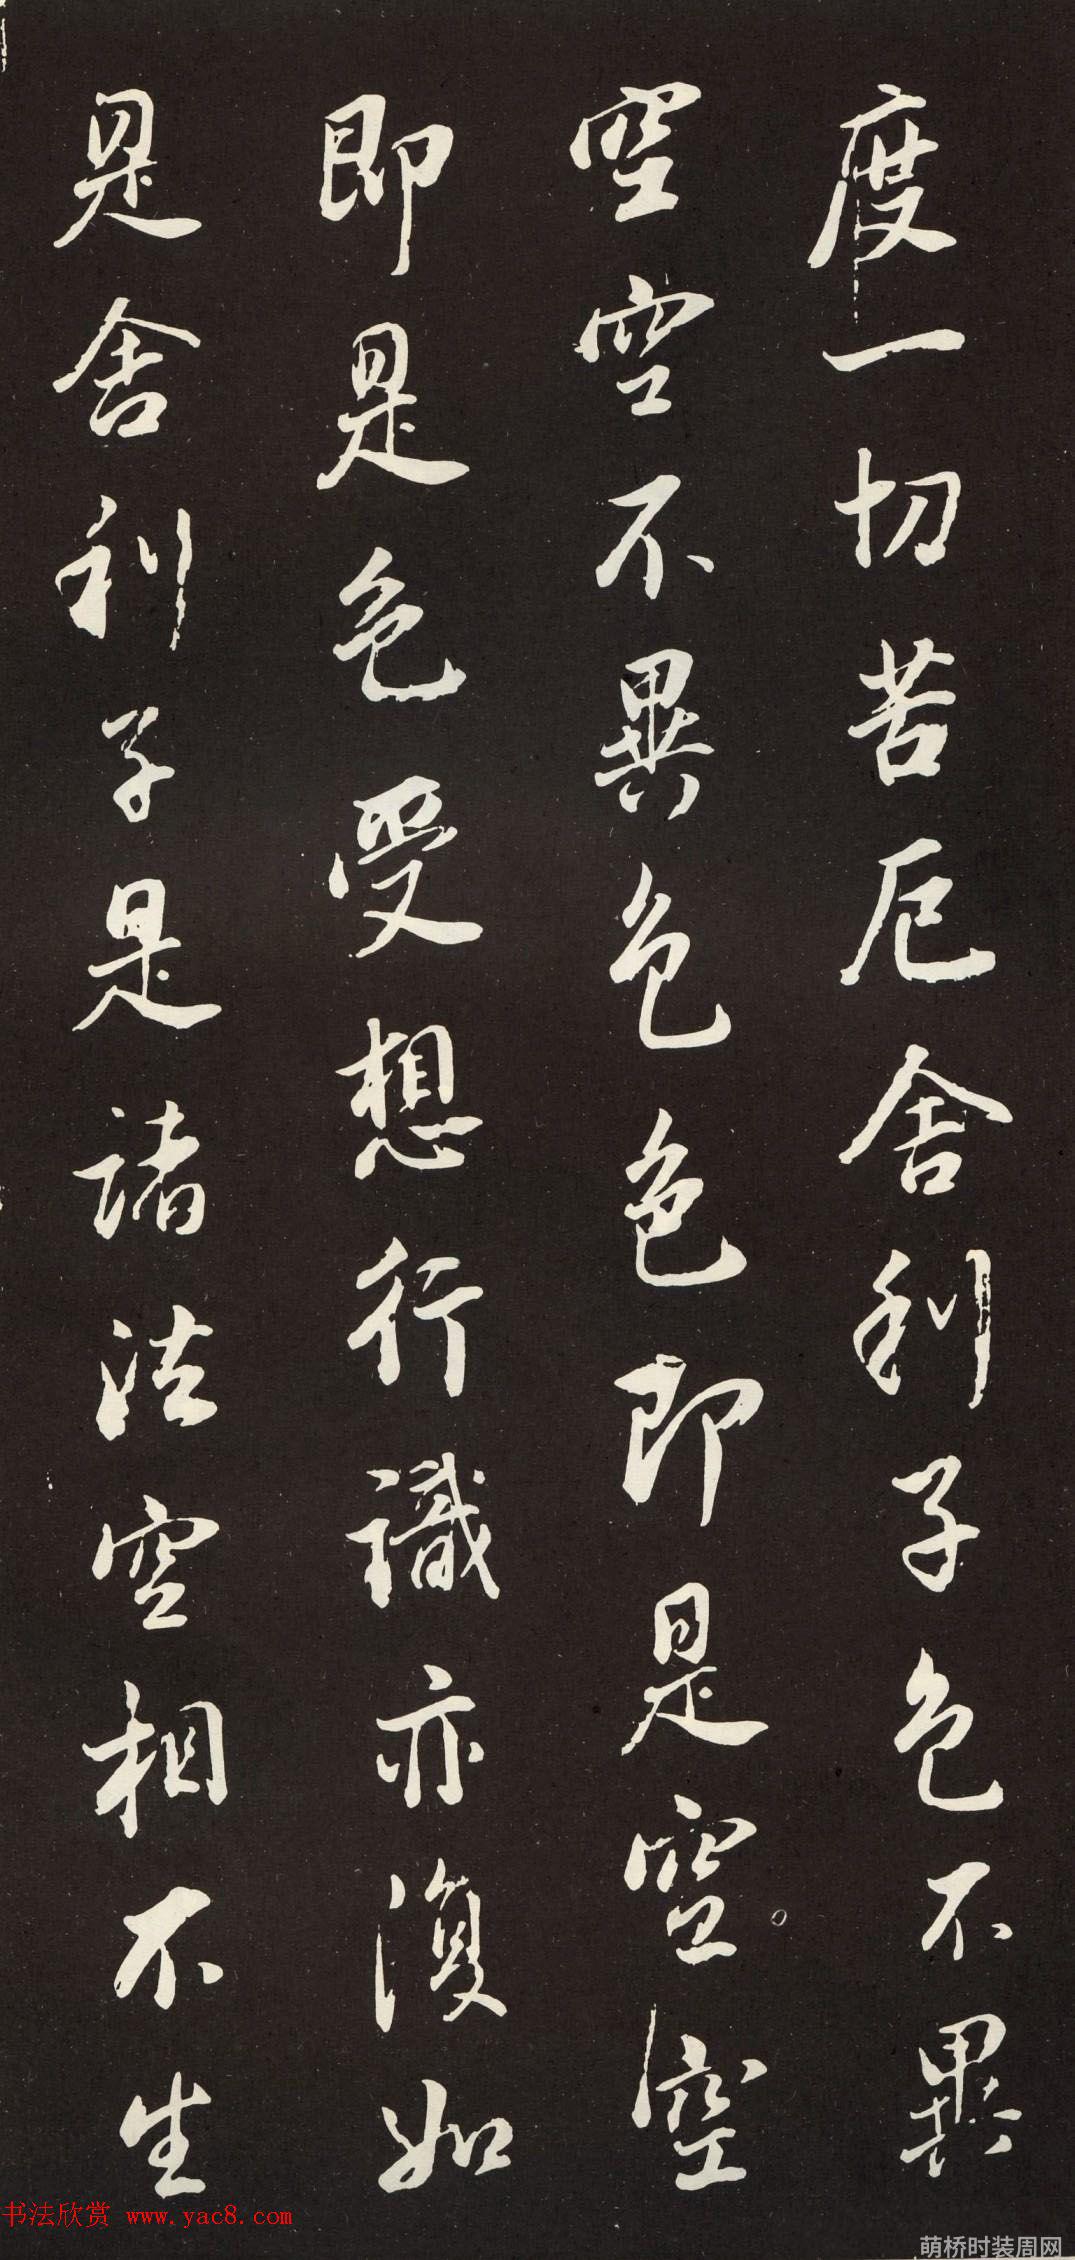 度一切苦厄舍利子色不異
空空不異色色即是空空
即是色受想行識亦復如
是舍利子是諸法空相不生
书法欣赏 www.yac8.com
萌桥时装周网